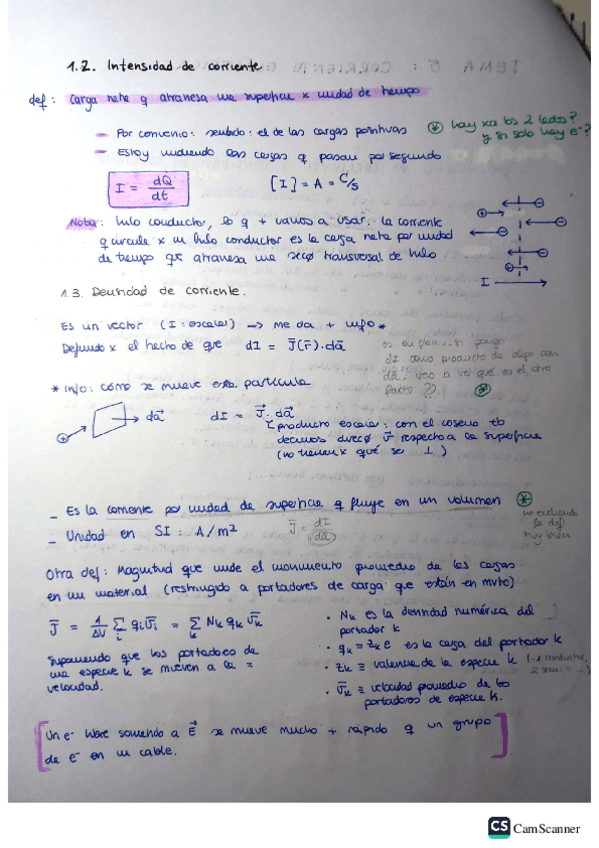 1.2. Intensidad de corriente
def: Carga neta q atraviesa una superficie x unidad de tiempo
— Por convenio: sentido: el de las cargas positivas
* hay xa los 2 lados?
y si solo hay e⁻?
— Estoy midiendo las cargas q pasan por segundo
I = dQ/dt
[I] = A = C/s
Nota: hilo conductor, lo q + vamos a usar: la corriente
q circule x un hilo conductor es la carga neta por unidad
de tiempo que atraviesa una secc⁰ transversal de hilo
I
1.3. Densidad de corriente.
Es un vector (I: escalar) → me da + info *
Definido x el hecho de que dI = J(r).da
es en plan... si pongo
dI como producto de algo con
da, veo a ver qué es el otro
factor ??
*
* Info: cómo se mueve esta partícula
da
dI = J.da
producto escalar: con el coseno tb
decimos direc⁰ v respecto a la superficie
(no tienen x qué ser ⊥)
– Es la corriente por unidad de superficie q fluye en un volumen
*
no entiendo
la def
muy bien
– Unidad en SI: A/m²
J = dI/da
Otra def: Magnitud que mide el movimiento promedio de las cargas
en un material (restringido a portadores de carga que están en mvto)
J = 1/ΔV Σi qi vi = Σk Nk qk vk
· Nk es la densidad numérica del
portador k
· qk = zk e es la carga del portador k
Suponiendo que los portadores de
una especie k se mueven a la =
velocidad.
· zk ≡ valencia de la especie k
· vk ≡ velocidad promedio de los
portadores de especie k.
Un e⁻ libre sometido a E se mueve mucho + rápido q un grupo
de e⁻ en un cable.
CS CamScanner